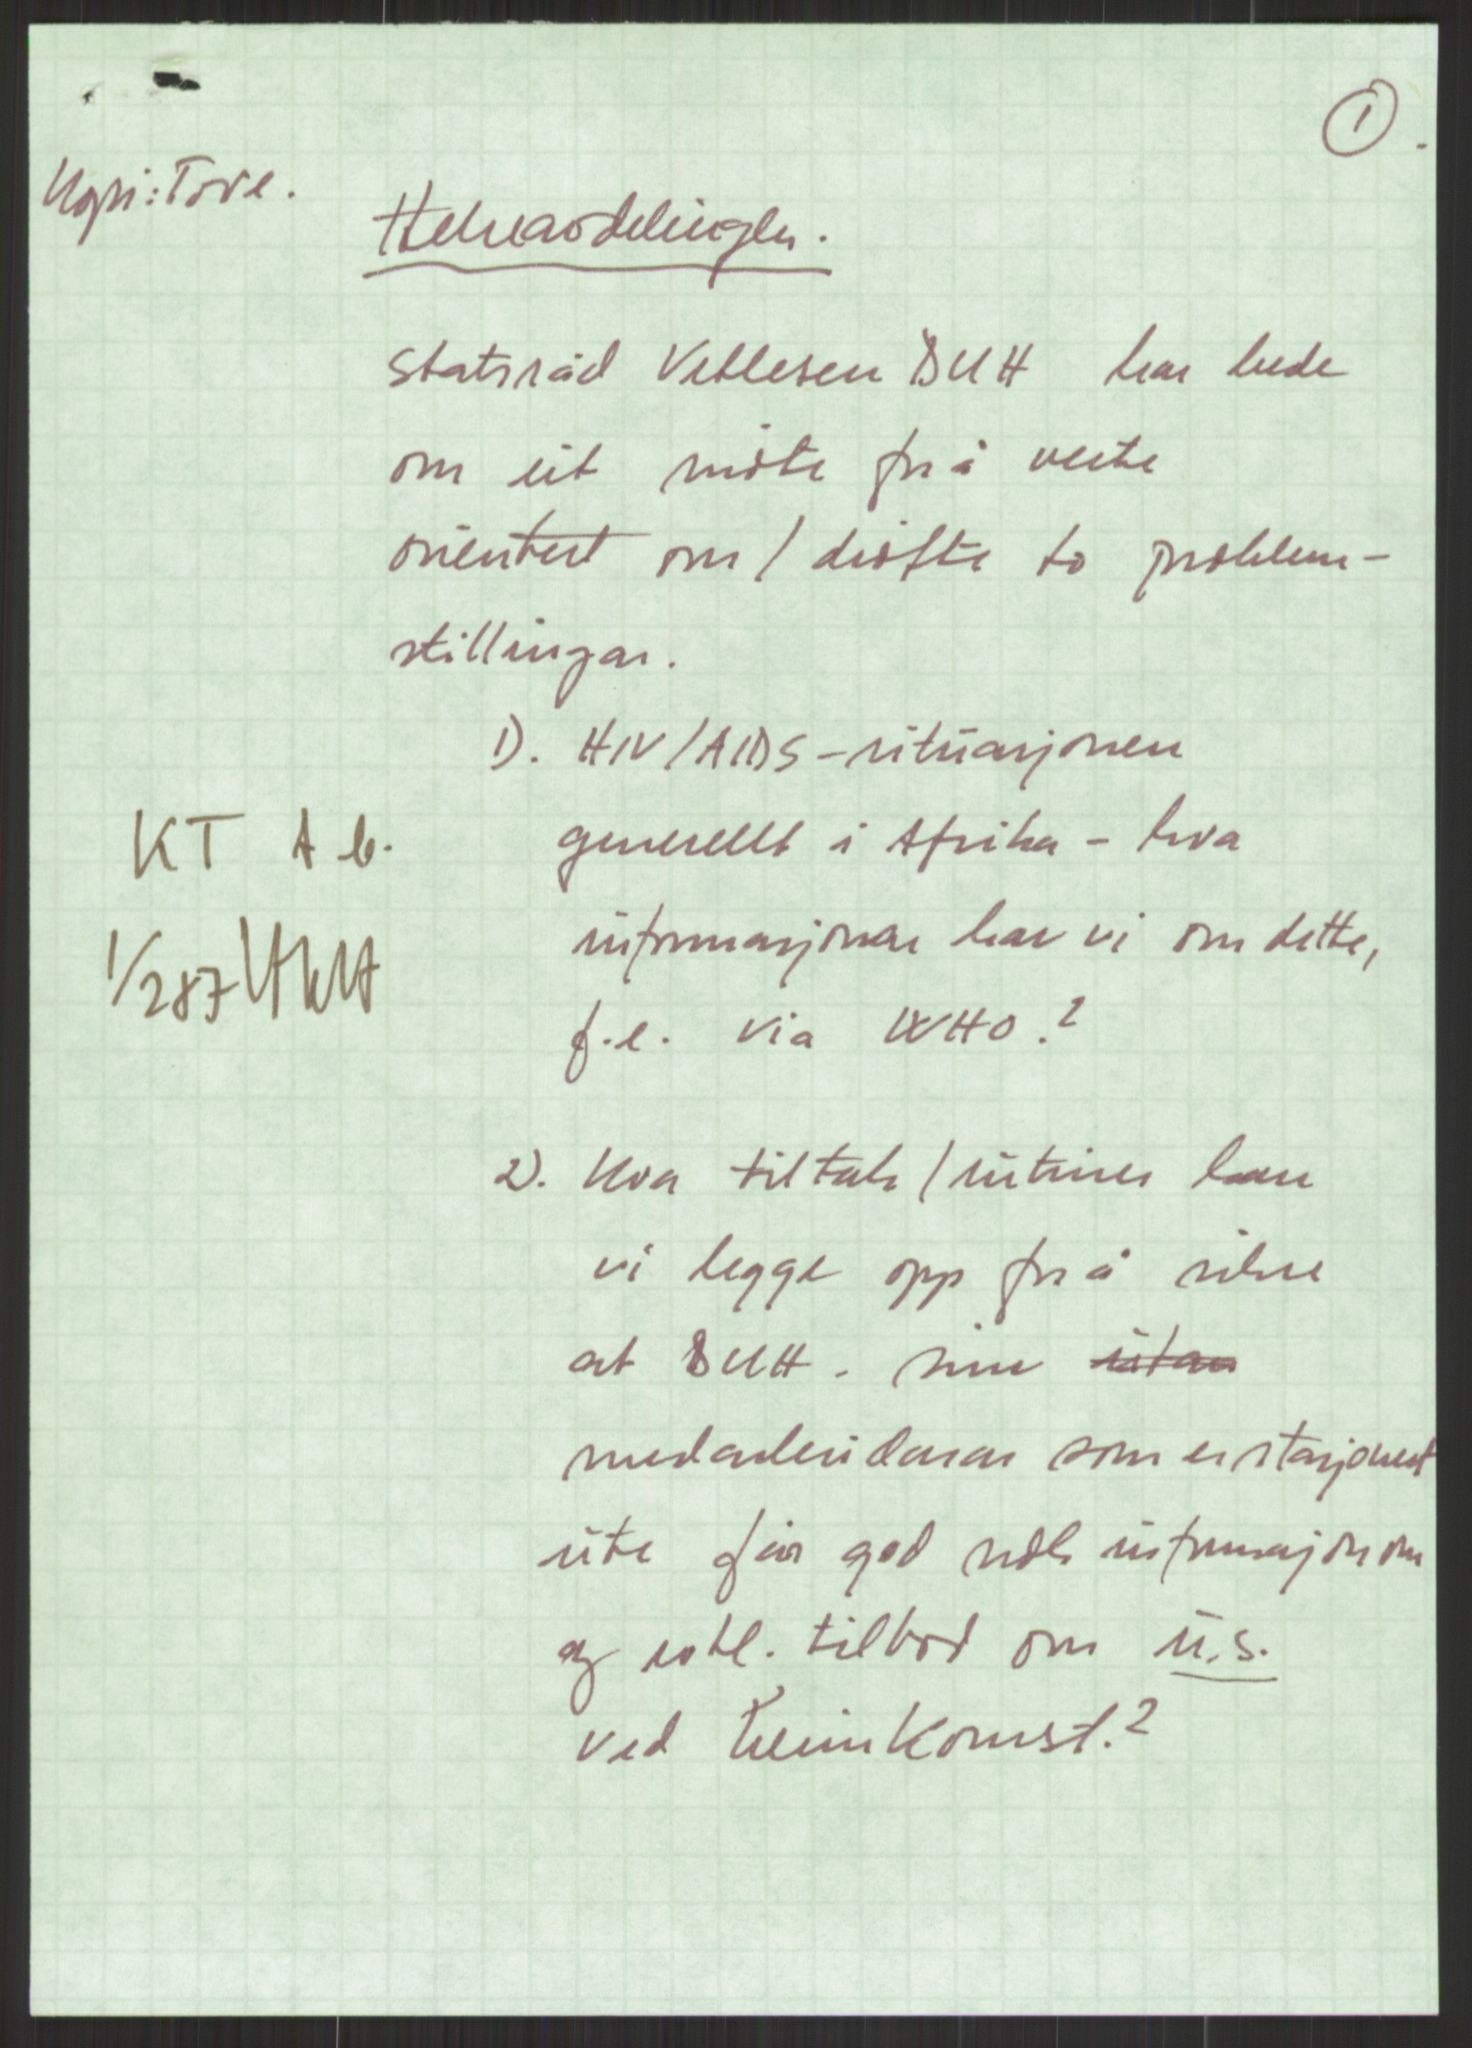 1.
Kopi: Tove.
Helseavdelinga.
Statsråd Vetlesen DUH har bede
om eit møte for å verte
orientert om / drøfte to problem-
stillingar.
1). HIV/AIDS-situasjonen
generellt i Afrika - kva
informasjonar har vi om dette,
f.e. via WHO.?
KT A b.
1/287
2). Kva tiltak / rutiner kan
vi legge opp for å sikre
at DUH. sine utan
medarbeidarar som er stasjonert
ute får god nok informasjon om
og evtl. tilbod om u.s.
ved heimkomst.?